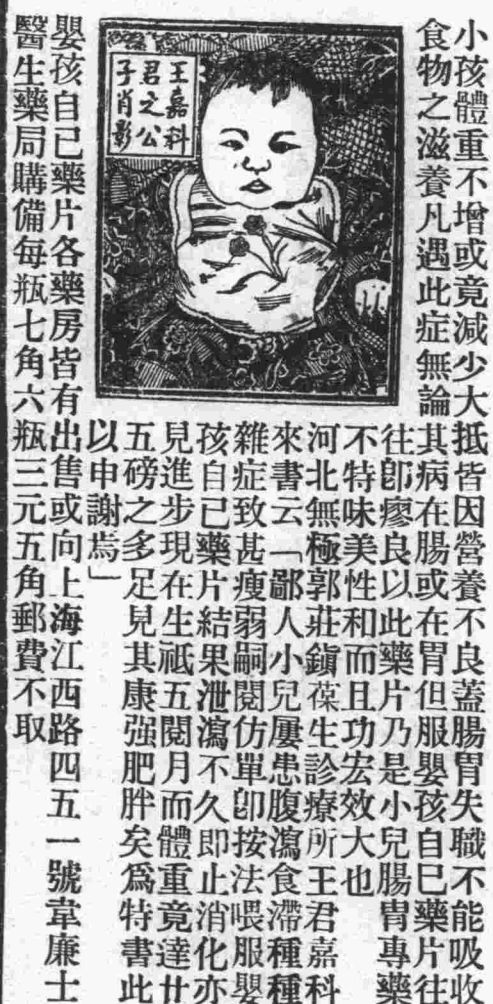 小孩體重不增或竟減少大抵皆因營養不良蓋腸胃失職不能吸收
食物之滋養凡遇此症無論其病在腸或在胃但服嬰孩自己藥片往
往卽瘳良以此藥片乃是小兒腸胃專藥
不特味美性和而且功宏效大也
河北無極郭莊鎭葆生診療所王君嘉科
來書云「鄙人小兒屢患腹瀉食滯種種
雜症致甚瘦弱嗣閱仿單卽按法喂服嬰
孩自己藥片結果泄瀉不久即止消化亦
見進步現在生祇五閱月而體重竟達廿
五磅之多足見其康强肥胖矣爲特書此
以申謝焉」
王嘉科
君之公
子肖影
嬰孩自己藥片各藥房皆有出售或向上海江西路四五一號韋廉士
醫生藥局購備每瓶七角六瓶三元五角郵費不取